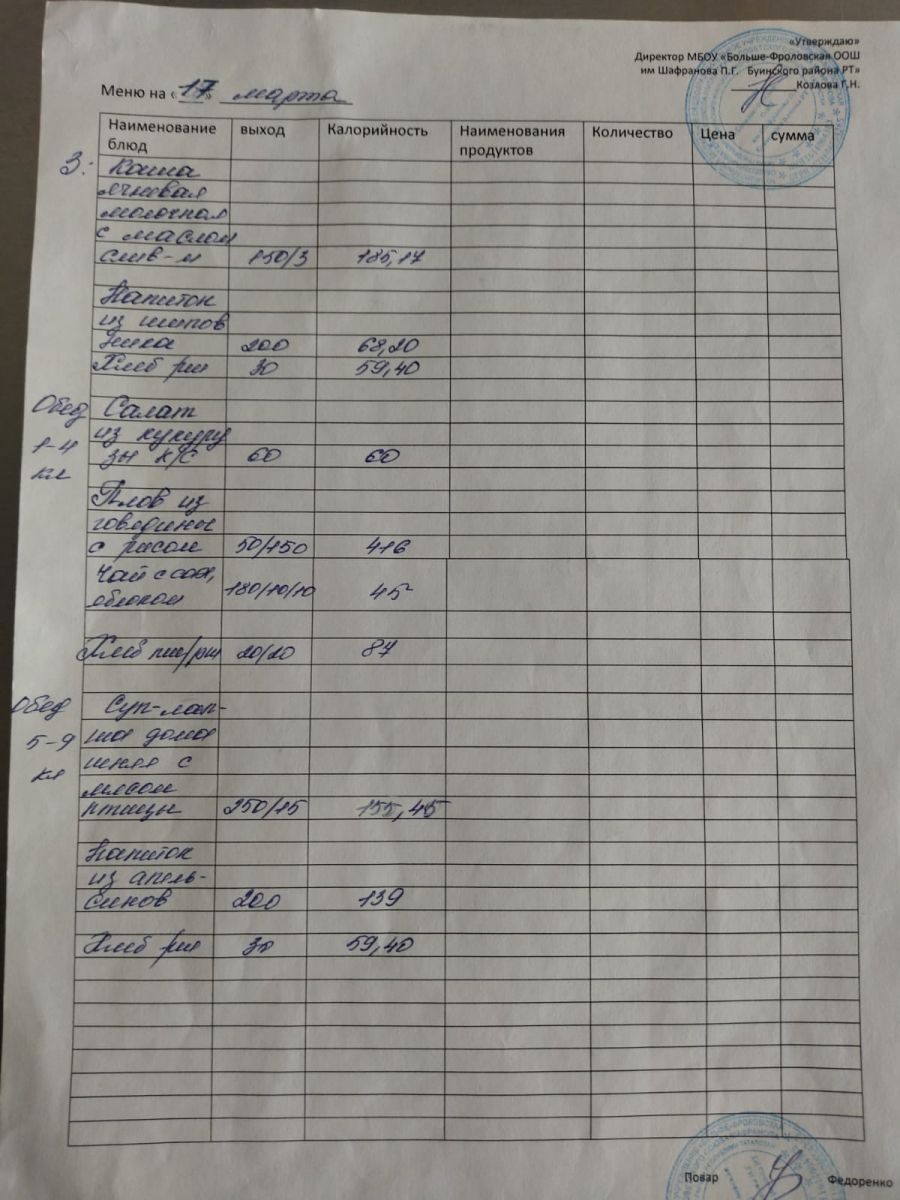 «Утверждаю»
Директор МБОУ «Больше-Фроловская ООШ
им Шафранова П.Г. Буинского района РТ»
Козлова Г.Н.
Меню на «17» марта
Наименование блюд выход Калорийность Наименования продуктов Количество Цена сумма
З: Каша
ячневая
молочная
с маслом
слив-м 150/3 185,17
Напиток
из шипов
ника 200 68,20
Хлеб рж 30 59,40
Обед Салат
1-4 из кукуру
кл зы к/с 60 60
Плов из
говядины
с рисом 50/150 416
Чай с сах,
яблоком 180/10/10 45
Хлеб пш/рж 20/20 87
Обед Суп-лап-
5-9 ша дома
кл шняя с
мясом
птицы 250/15 155,45
Напиток
из апель-
синов 200 139
Хлеб рж 30 59,40
Повар Федоренко